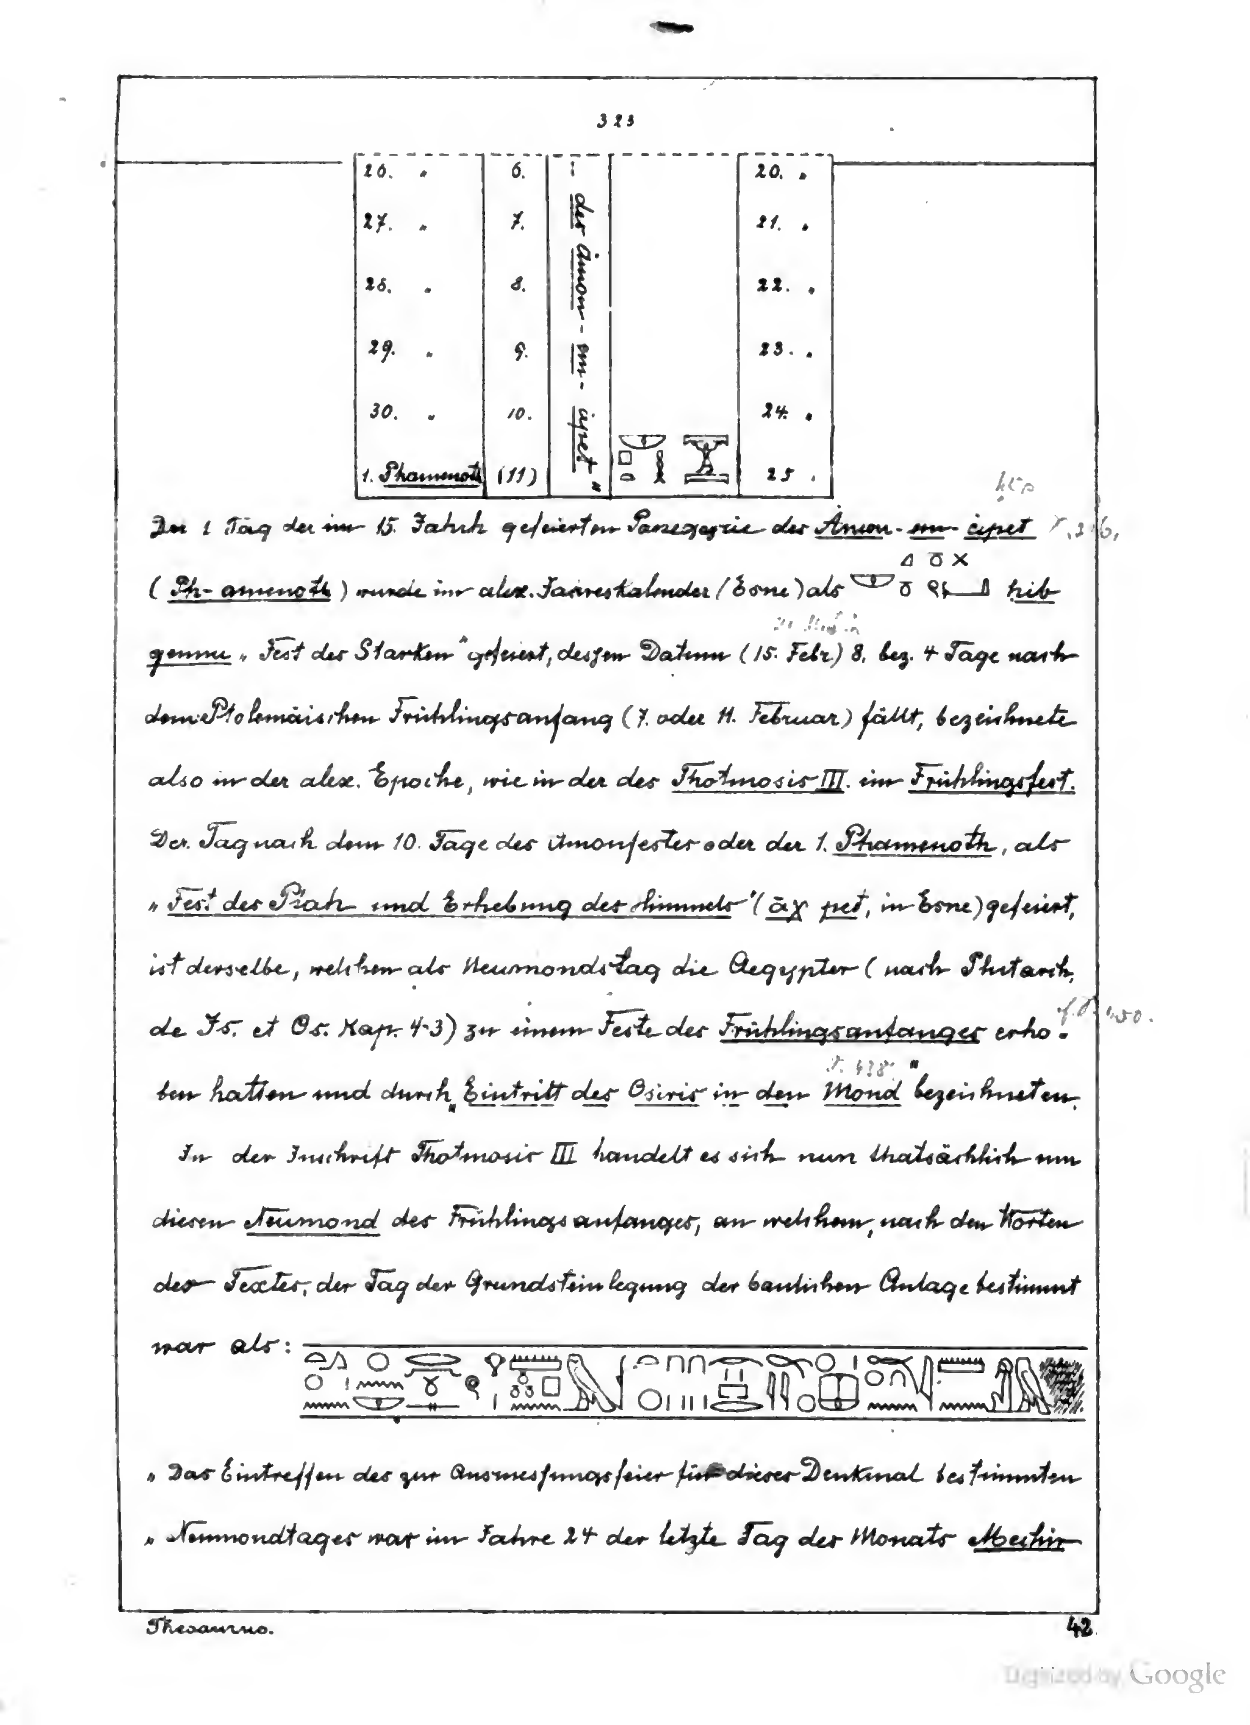 323
26. " 6. 20. "
27. " 7. 21. "
28. " 8. 22. "
29. " 9. 23. "
30. " 10. 24. "
1. Phamenoth (11) 25 "
des Amon-em-apet"
Der 1 Tag der im 15. Jahrh gefeierten Panegyrie des Amon-em-apet
(Ph-amenoth) wurde im alex. Jahreskalender (Esne) als hib
gennu „Fest des Starken" gefeiert, dessen Datum (15. Febr.) 8, bez. 4 Tage nach
dem Ptolemäischen Frühlingsanfang (7. oder 11. Februar) fällt, bezeichnete
also in der alex. Epoche, wie in der des Thotmosis III. ein Frühlingsfest.
Der Tag nach dem 10. Tage des Amonfestes oder der 1. Phamenoth, als
„Fest des Ptah und Erhebung des Himmels" (āχ pet, in Esne) gefeiert,
ist derselbe, welchen als Neumondstag die Aegypter (nach Plutarch,
de Is. et Os. Kap. 43) zu einem Feste des Frühlingsanfanges erho-
ben hatten und durch „Eintritt des Osiris in den Mond" bezeichneten.
In der Inschrift Thotmosis III handelt es sich nun thatsächlich um
diesen Neumond des Frühlingsanfanges, an welchem, nach den Worten
des Textes, der Tag der Grundsteinlegung der baulichen Anlage bestimmt
war als:
„Das Eintreffen des zur Ausmessungsfeier für dieses Denkmal bestimmten
„Neumondtages war im Jahre 24 der letzte Tag des Monats Mechir
Thesaurus. 42
Digitized by Google